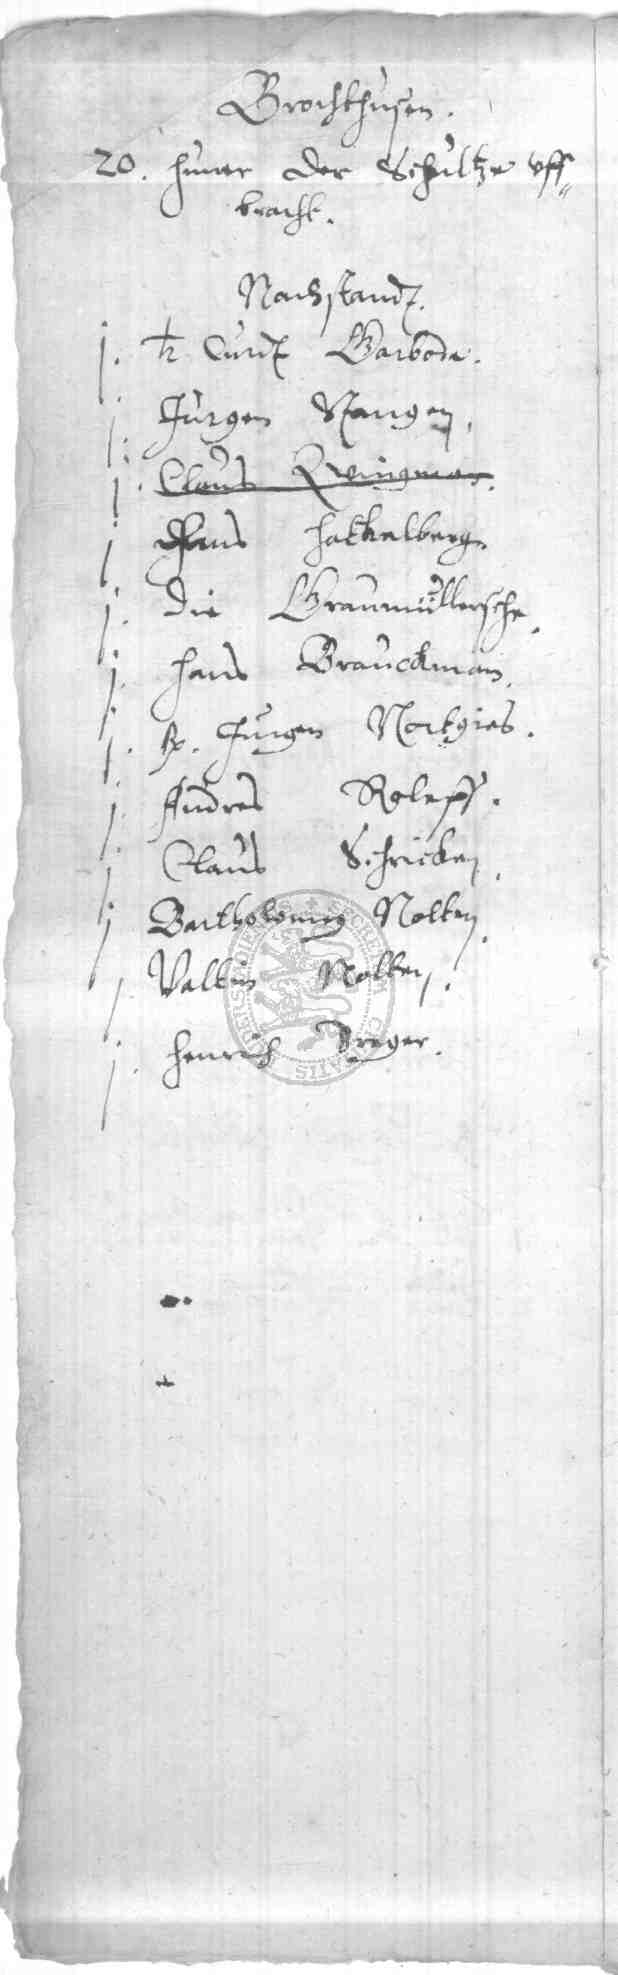 Brochthusen.
20. huner der Schultze uff„
bracht.
Nachstandt.
j. Curdt Garbode.
j. Jurgen Stangen.
j. Claus Zwingman.
j Hans Hackelberg.
j. die Graumüllersche.
j. Hans Brauckman.
j. Jurgen Nortgies.
j. Andres Roleff.
j Claus Schricken.
j Bartholomeg Nolten.
j. Valtin Nolten.
j. Henrich Dreger.